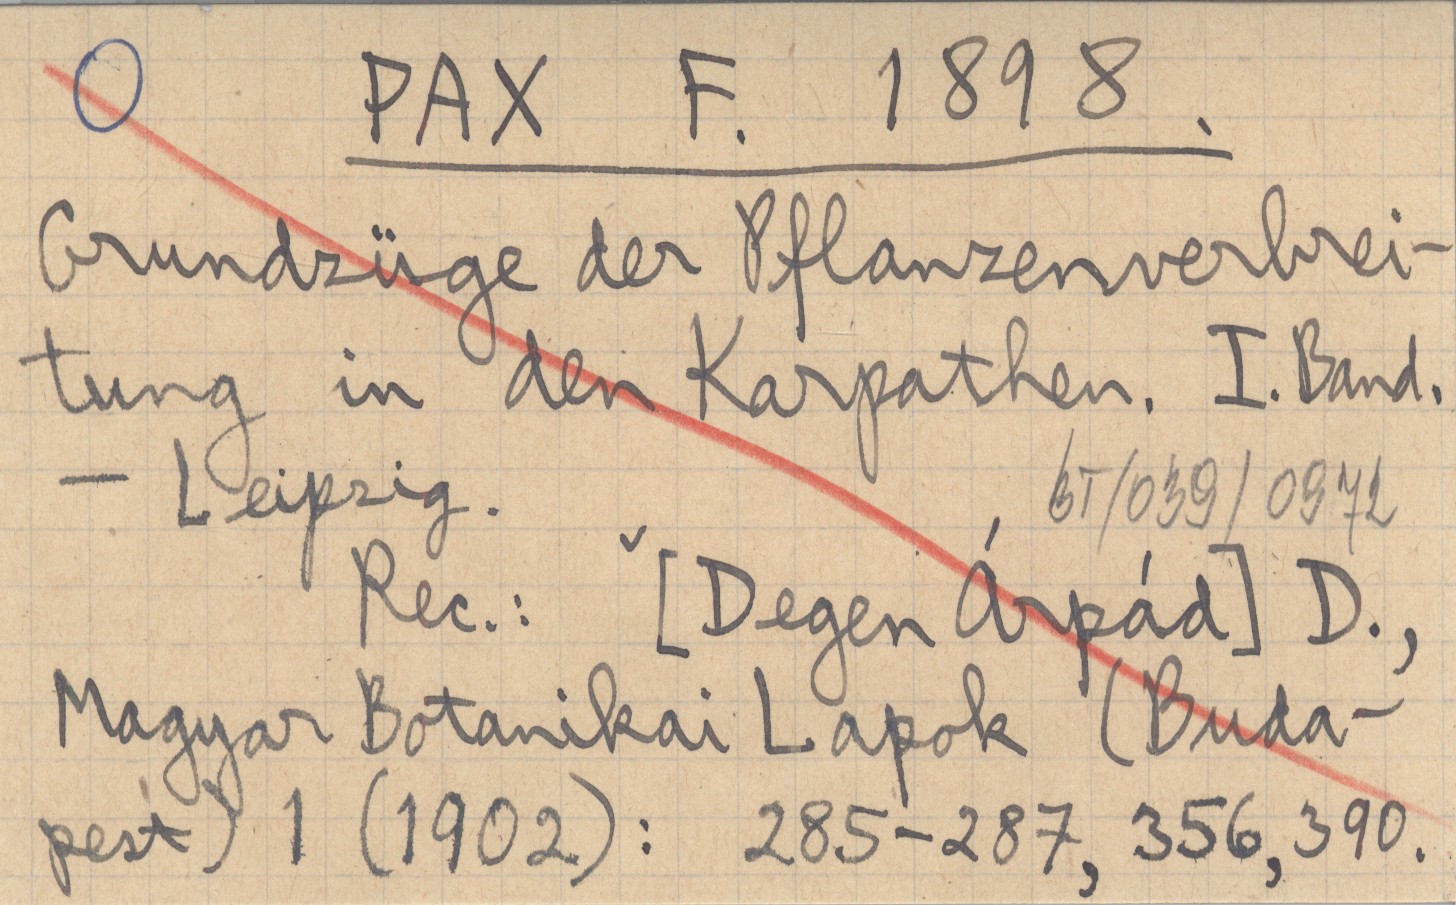 O PAX F. 1898.
Grundzüge der Pflanzenverbrei-
tung in den Karpathen. I. Band.
– Leipzig.
BT/039/0972
Rec.: [Degen Árpád] D.,
Magyar Botanikai Lapok (Buda-
pest) 1 (1902): 285–287, 356, 390.